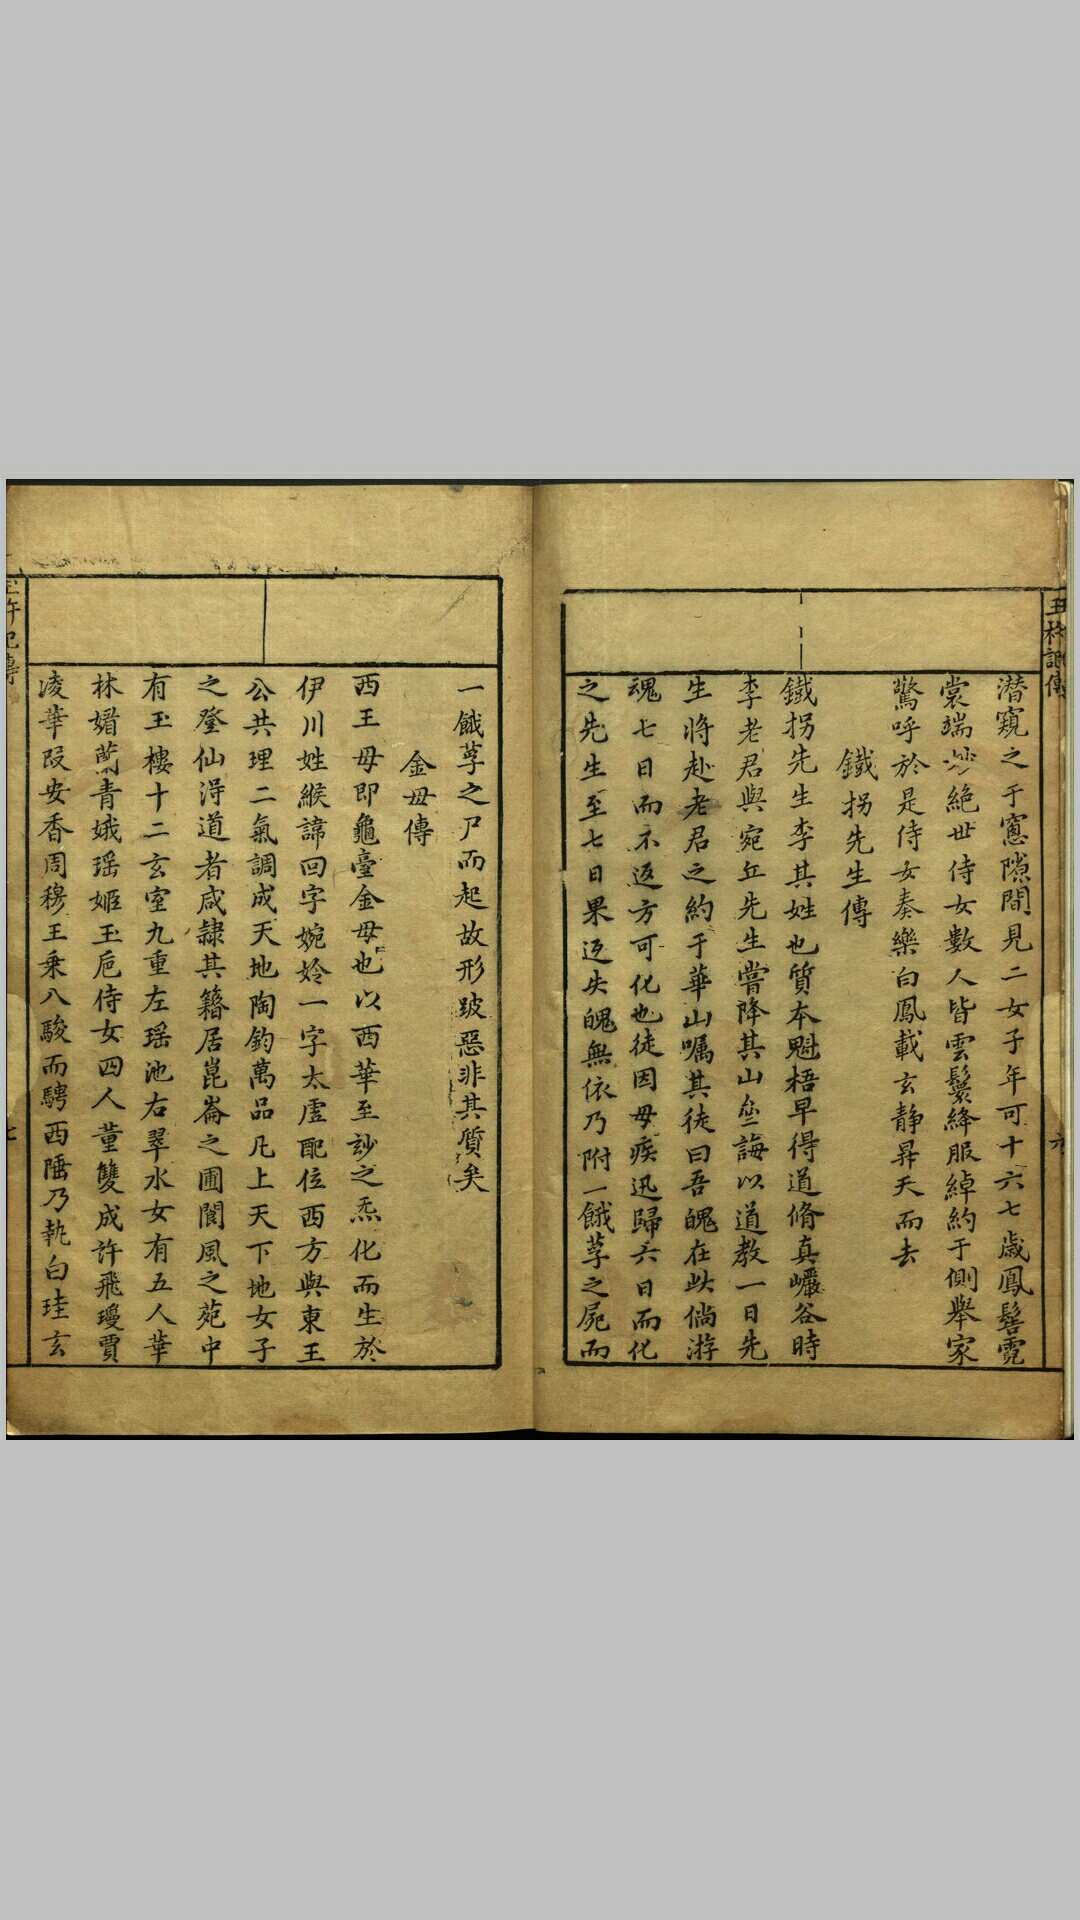 潜窺之于窻隙間見二女子年可十六七歲鳳髻霓
裳端妙絶世侍女數人皆雲鬟絳服綽約于側舉家
驚呼於是侍女奏樂白鳳載玄靜昇天而去
鐵拐先生傳
鐵拐先生李其姓也質本魁梧早得道脩真巗谷時
李老君與宛丘先生嘗降其山㘴誨以道教一日先
生將赴老君之約于華山囑其徒曰吾魄在此倘游
魂七日而不返方可化也徒因母疾迅歸六日而化
之先生至七日果返失魄無依乃附一餓莩之屍而
一餓莩之尸而起故形跛惡非其質矣
金母傳
西王母即龜臺金母也以西華至玅之炁化而生於
伊川姓緱諱回字婉妗一字太虛配位西方與東王
公共理二氣調成天地陶鈞萬品凡上天下地女子
之登仙淂道者咸隸其籍居崑崙之圃閬風之苑中
有玉樓十二玄室九重左瑶池右翠水女有五人華
林媚蘭青娥瑶姬玉巵侍女四人董雙成許飛瓊賈
凌華叚安香周穆王乗八駿而騁西陲乃執白珪玄